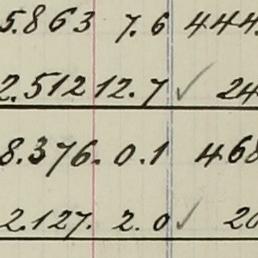 5.863 7.6 444.
2.512 12.7 ✓ 24
8.376. 0.1 468
2.127. 2.0 ✓ 20